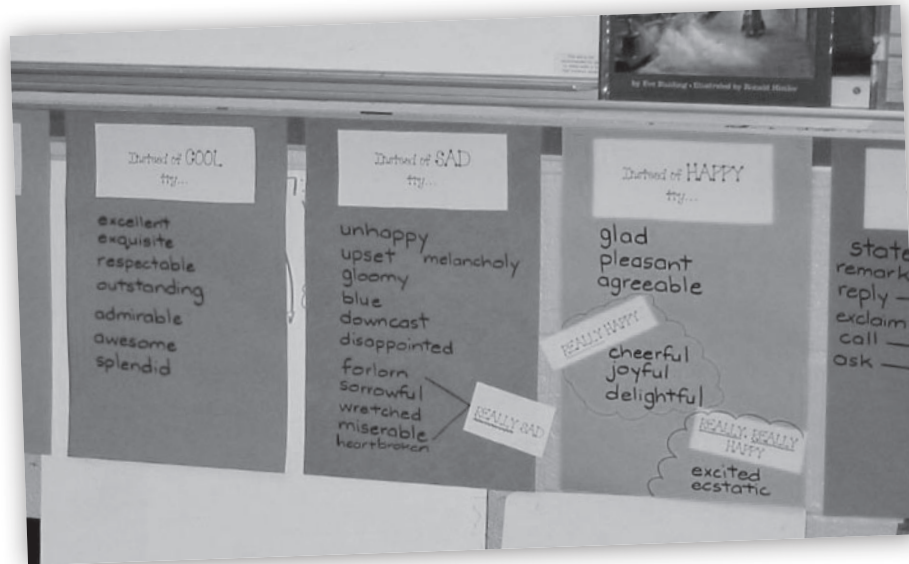 by Eve Bunting • Illustrated by Ronald Himler
Instead of COOL
try...
excellent
exquisite
respectable
outstanding
admirable
awesome
splendid
Instead of SAD
try...
unhappy
upset melancholy
gloomy
blue
downcast
disappointed
forlorn
sorrowful
wretched
miserable
heartbroken
REALLY SAD
Instead of HAPPY
try...
glad
pleasant
agreeable
REALLY HAPPY
cheerful
joyful
delightful
REALLY, REALLY
HAPPY
excited
ecstatic
state
remark
reply —
exclaim
call —
ask —